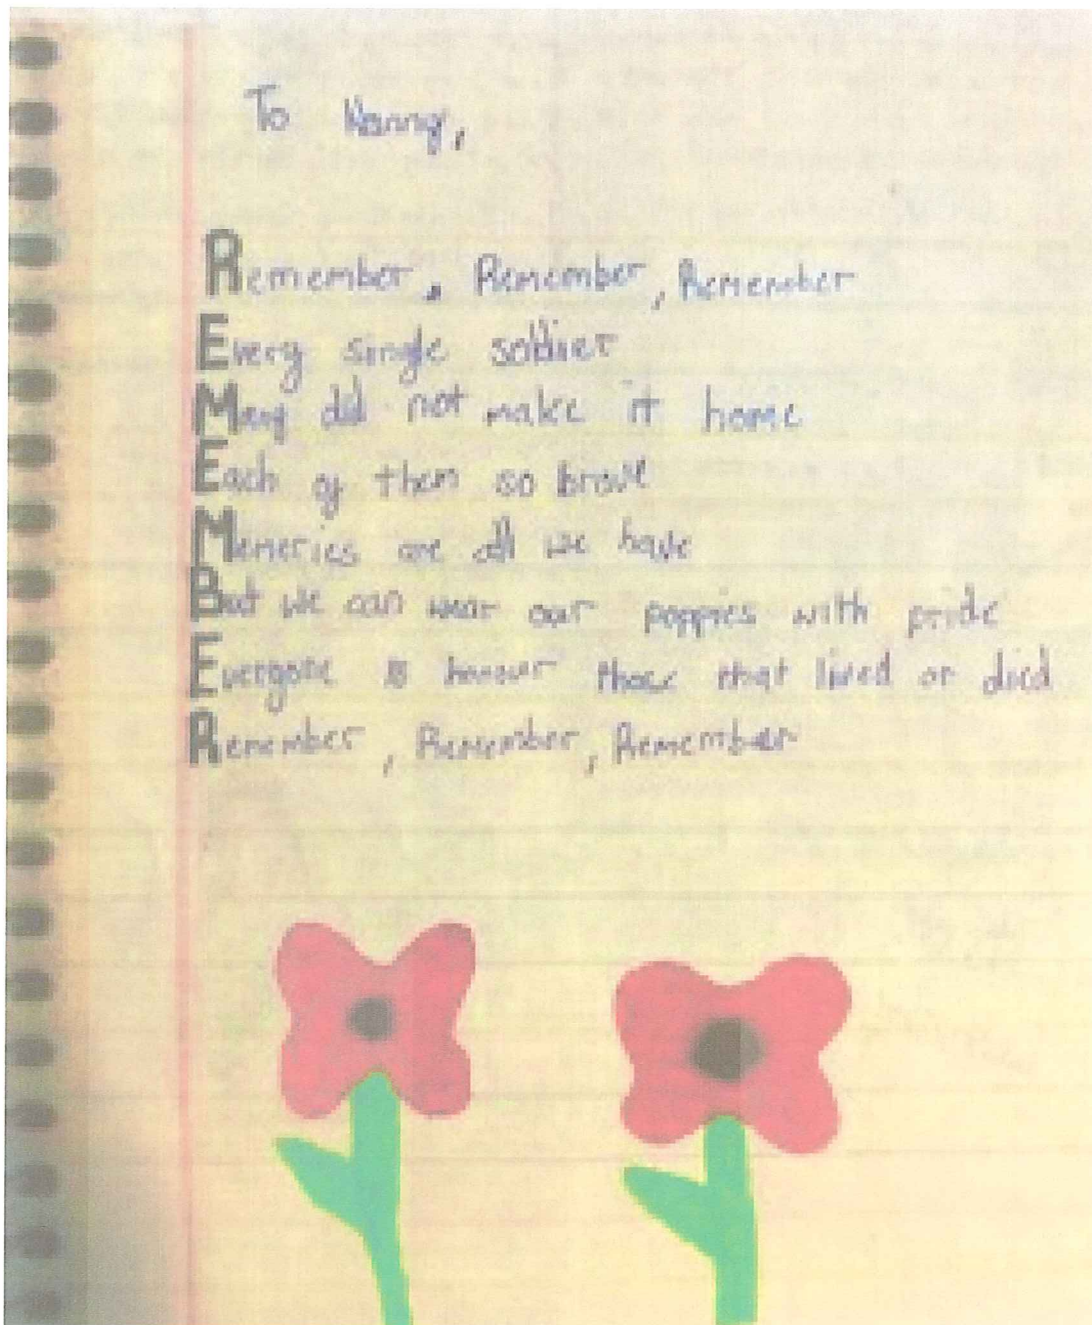 To Nanny,
Remember, Remember, Remember
Every single soldier
Many did not make it home
Each of them so brave
Memeries are all we have
But we can wear our poppies with pride
Everyone honour those that lived or died
Remember, Remember, Remember